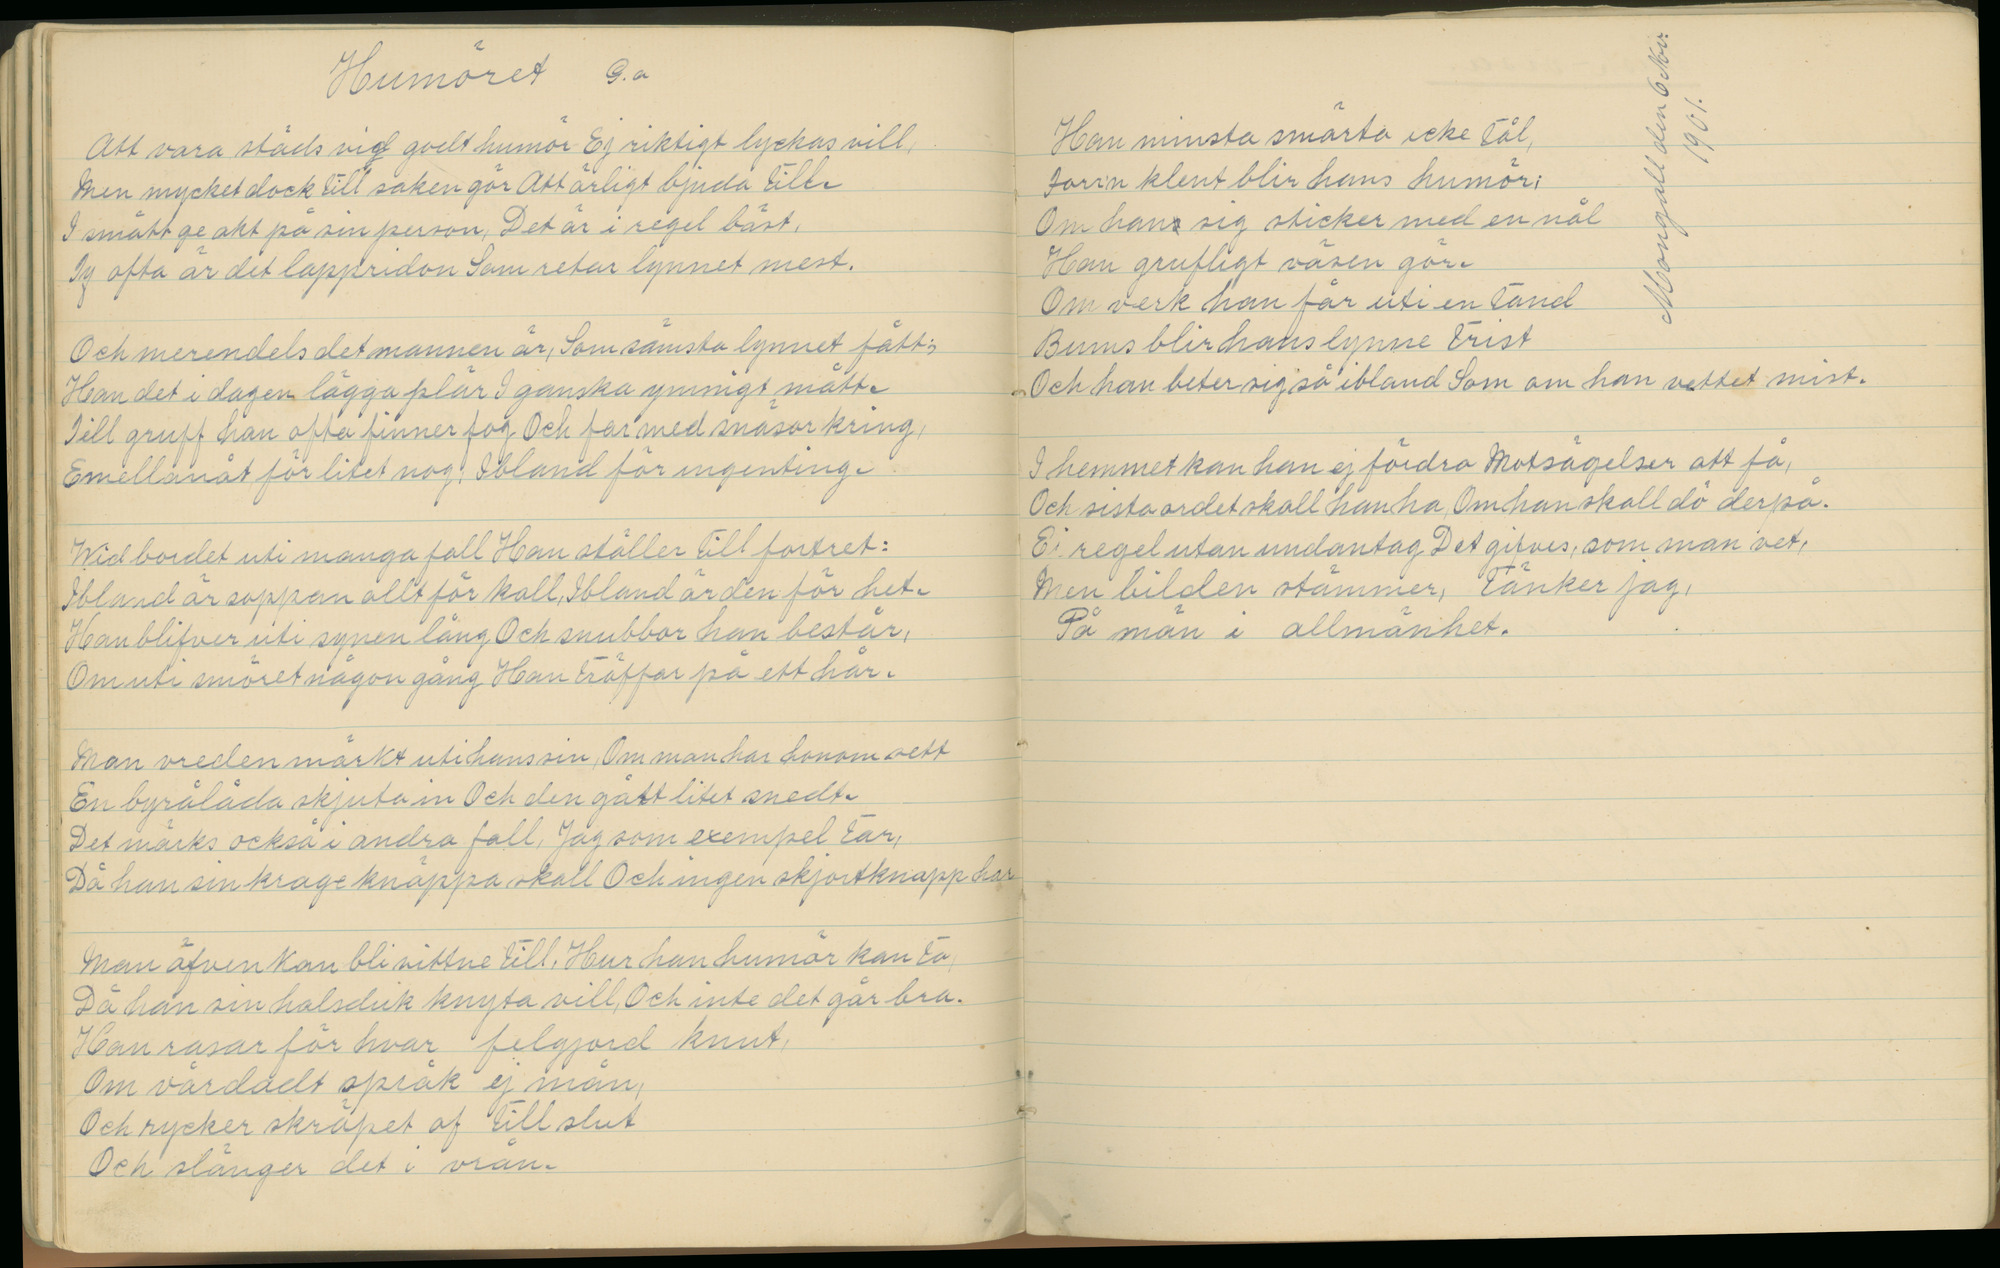 Humöret G.a
Att vara städs vid godt humör Ej riktigt lyckas vill,
Men mycket dock till saken gör Att ärligt bjuda till.
I smått ge akt på sin person, Det är i regel bäst,
Ty ofta är det lappridon Som retar lynnet mest.
Och merendels det mannen är, Som sämsta lynnet fått;
Han det i dagen lägga plär I ganska ymnigt mått.
Till gruff han ofta finner fog Och far med snäsor kring,
Emellanåt för litet nog, Ibland för ingenting.
Wid bordet uti manga fall Han ställer till fortret:
Ibland är soppan allt för kall, Ibland är den för het.
Han blifver uti synen lång Och snubbor han består,
Om uti smöret någon gång Han träffar på ett hår.
Man vreden märkt uti hans sin, Om man har honom sett
En byrålåda skjuta in Och den gått litet snedt.
Det märks också i andra fall, Jag som exempel tar,
Då han sin krage knäppa skall Och ingen skjortknapp har
Man äfven kan bli vittne till, Hur han humör kan ta,
Då han sin halsduk knyta vill, Och inte det går bra.
Han rasar för hvar felgjord knut,
Om vårdadt språk ej mån,
Och rycker skräpet af till slut
Och slänger det i vrån.
Han minsta smärta icke tål,
Förin klent blir hans humör;
Om han sig sticker med en nål
Han grufligt väsen gör.
Om verk han får uti en tand
Bums blir hans lynne trist
Och han beter sig så ibland Som om han vettet mist.
I hemmet kan han ej fördra Motsägelser att få,
Och sista ordet skall han ha, Om han skall dö derpå.
Ej regel utan undantag Det gifves, som man vet,
Men bilden stämmer, tänker jag,
På män i allmänhet.
den 6 Nov.
1901.